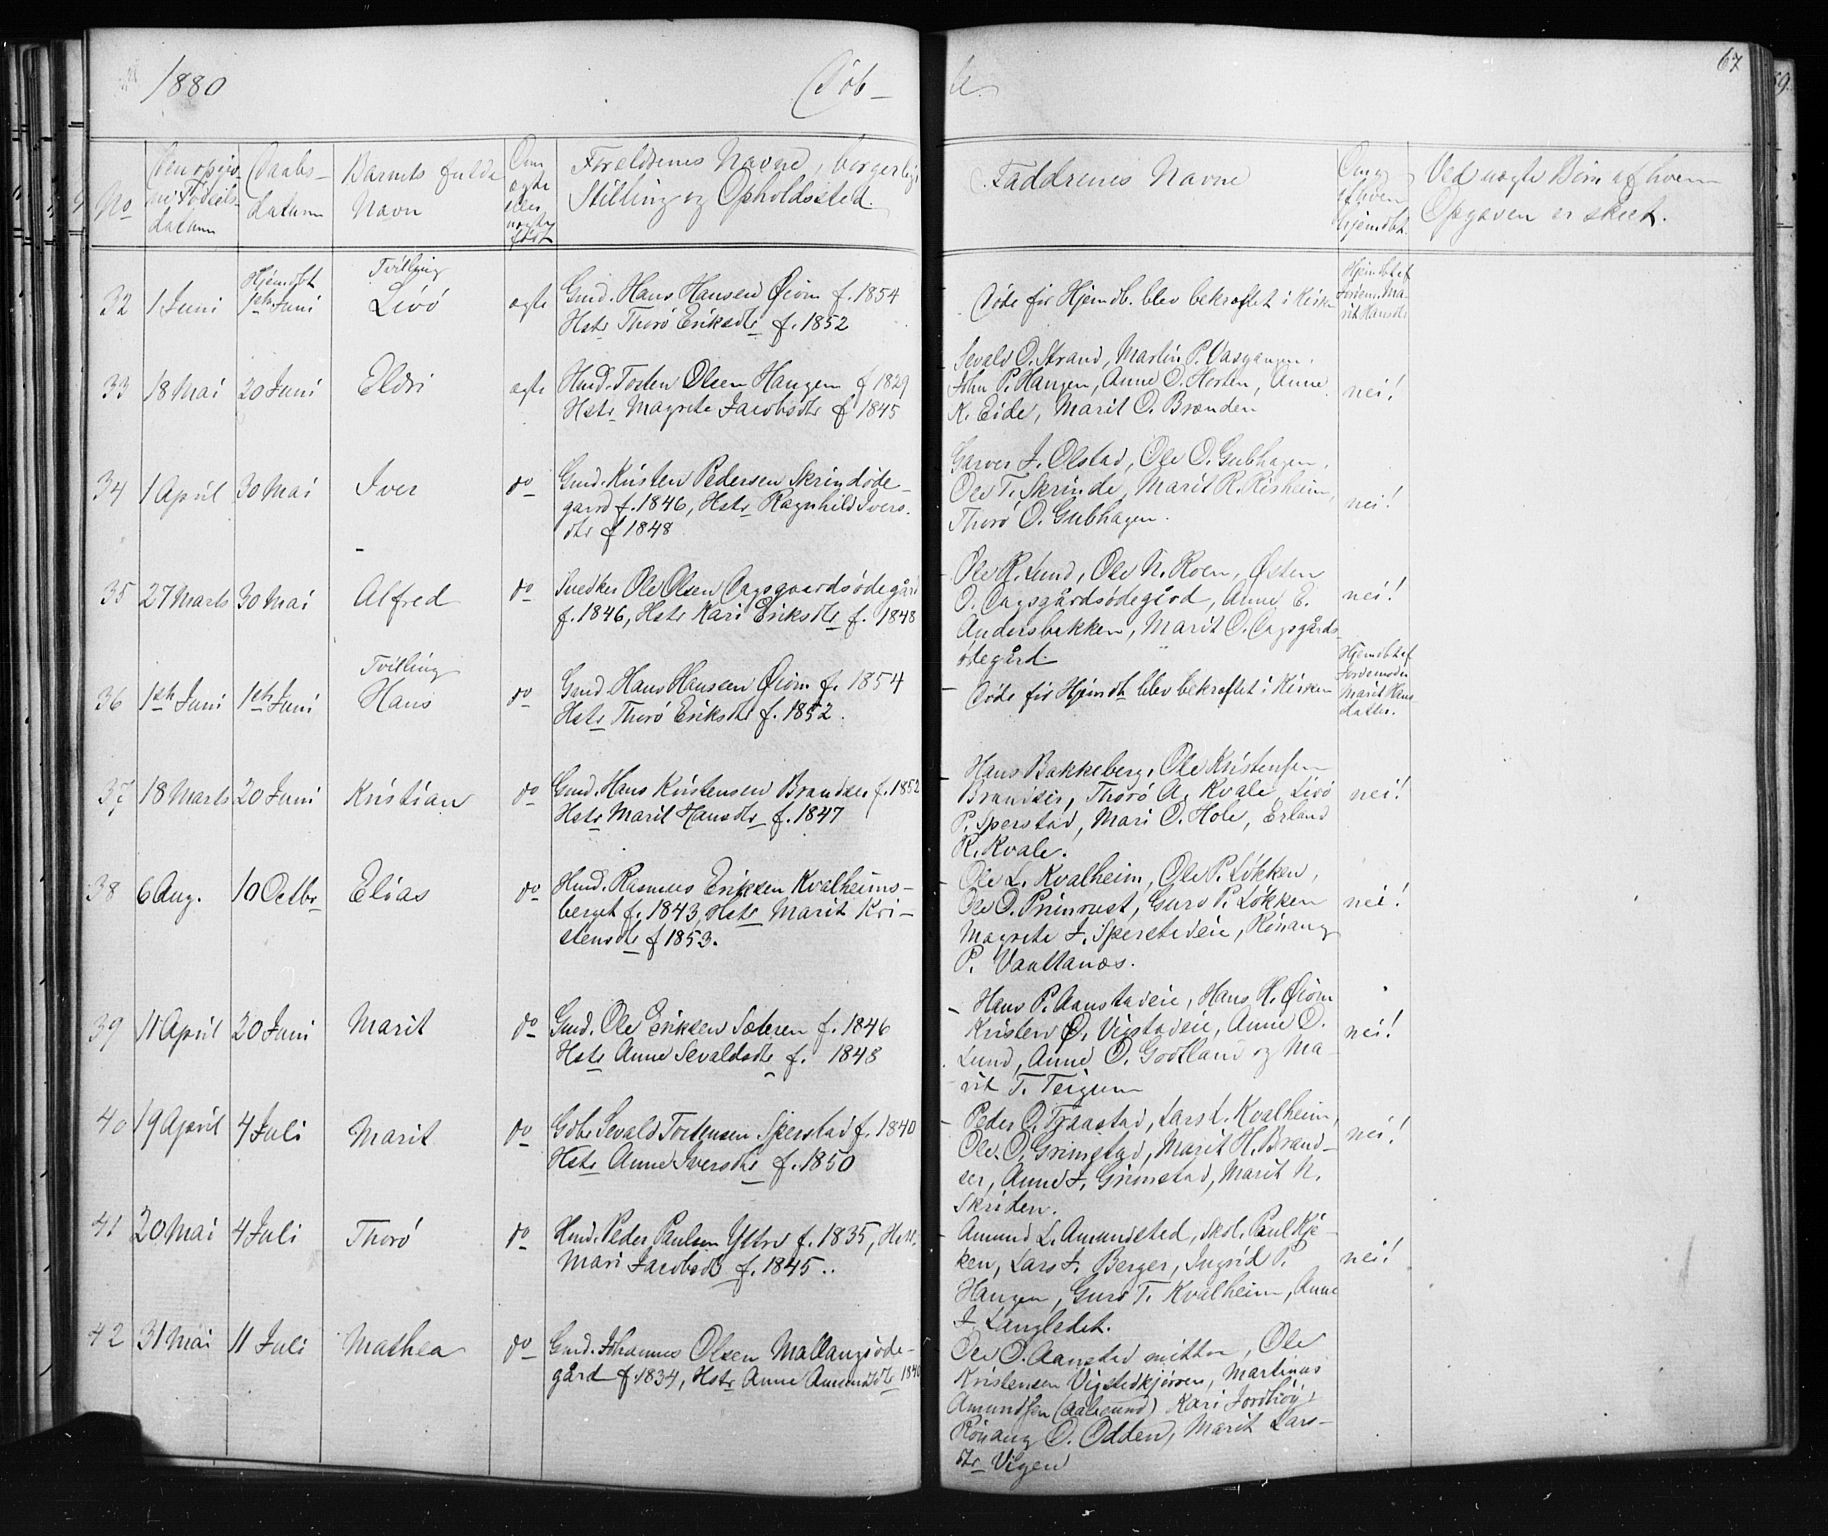 1880
Døb-
e.
67
No
Den opgiv-
ne Fødsels-
datum
Daabs-
datum
Barnets fulde
Navn
Om
ægte
eller
uægte
født
Forældrenes Navne, borgerlig
Stilling og Opholdssted.
Faddrenes Navne
Om og
af hvem
hjemdbt.
Ved uægte Børn af hvem
Opgaven er skeet.
32 1 Juni Hjemdbt 1ste Juni Tvilling Livö ægte
Gmd. Hans Hansen Øiom f. 1854
Hstr Thorö Eriksdtr f. 1852
Døde før Hjemdb. blev bekræftet i Kirken
Hjemdbt af
Jordem. Ma-
rit Hansdtr
33 18 Mai 20 Juni Eldri ægte
Hmd. Tosten Olsen Haugen f 1829
Hstr Magrete Jacobsdtr f 1845
Sevald O. Strand, Martin P. Vaagaasen,
John P. Haugen, Anne O. Horten, Anne
K. Eide, Marit O. Brænden
nei!
34 1 April 30 Mai Iver do
Gmd. Kristen Pedersen Skrindøde-
gaard f. 1846, Hstr Ragnhild Ivers-
dtr f 1848
J. Olstad, Ole O. Gubhagen,
Ole T. Skrinde, Marit R. Risheim,
Thorö O. Gubhagen.
nei!
35 27 Marts 30 Mai Alfred do
Snedker Ole Olsen Dagsgaardsödegård
f. 1846, Hstr Kari Eriksdtr f. 1848
Ole R. Lund, Ole N. Roen, Østen
O. Dagsgårdsödegård, Anne E.
Andersbakken, Marit O. Dagsgårds-
ödegård.
nei!
36 1ste Juni 1ste Juni Tvilling Hans do
Gmd. Hans Hansen Øiom f. 1854
Hstr Thorö Eriksdtr f. 1852.
Døde før Hjemdt blev bekræftet i Kirken
Hjemdbt af
Jordemoder
Marit Hans
datter.
37 18 Marts 20 Juni Kristian do
Gmd. Hans Kristensen Brandser f. 1852
Hstr Marit Hansdtr f. 1847
Hans Bakkeberg, Ole Kristensen
Brandser, Thorö A. Kvale, Livö
P. Sperstad, Mari O. Hole, Erland
K. Kvale.
nei!
38 6 Aug. 10 Octbr Elias do
Hmd. Rasmus Eriksen Kvalheims-
berget f. 1843, Hstr Marit Kri-
stensdtr f 1853.
Ole L. Kvalheim, Ole P. Løkken,
Ole O. Prinrust, Guro P. Løkken
Magrete J. Sperstadeie, Rönaug
P. Vaattanæs.
nei!
39 11 April 20 Juni Marit do
Gmd. Ole Eriksen Sæteren f. 1846
Hstr Anne Sevaldsdtr f. 1848
Hans P. Aanstadeie, Hans H. Øiom
Kristen O. Vigstadeie, Anne O.
Lund, Anne O. Godtland og Ma
rit T. Teigum
nei!
40 19 April 4 Juli Marit do
Gdbr Sevald Torgersen Sperstad f. 1840
Hstr Anne Iversdtr f. 1850
Peder O. Fraastad, Lars L. Kvalheim,
Ole O. Grimstad, Marit H. Brand-
ser, Anne J. Grimstad, Marit N.
Skriden.
nei!
41 20 Mai 4 Juli Thorö do
Hmd. Peder Paulsen Ystre f. 1835, Hstr
Mari Jacobsdtr f. 1845.
Amund L. Amundsted, Skol. Paul Kjø-
ken, Lars J. Berger, Ingrid P.
Haugen, Guro T. Kvalheim, Anne
J. Langledet.
nei!
42 31 Mai 11 Juli Mathea do
Gmd. Johannes Olsen Mallangsöde-
gård f. 1834, Hstr Anne Amundsdtr 1840
Ole O. Aanstad nittra, Ole
Kristensen Vigstedkjørren, Martinus
Amundsen (Aalesund) Kari Jordhöi,
Rönaug O. Odden, Marit Lars-
dtr Vigen